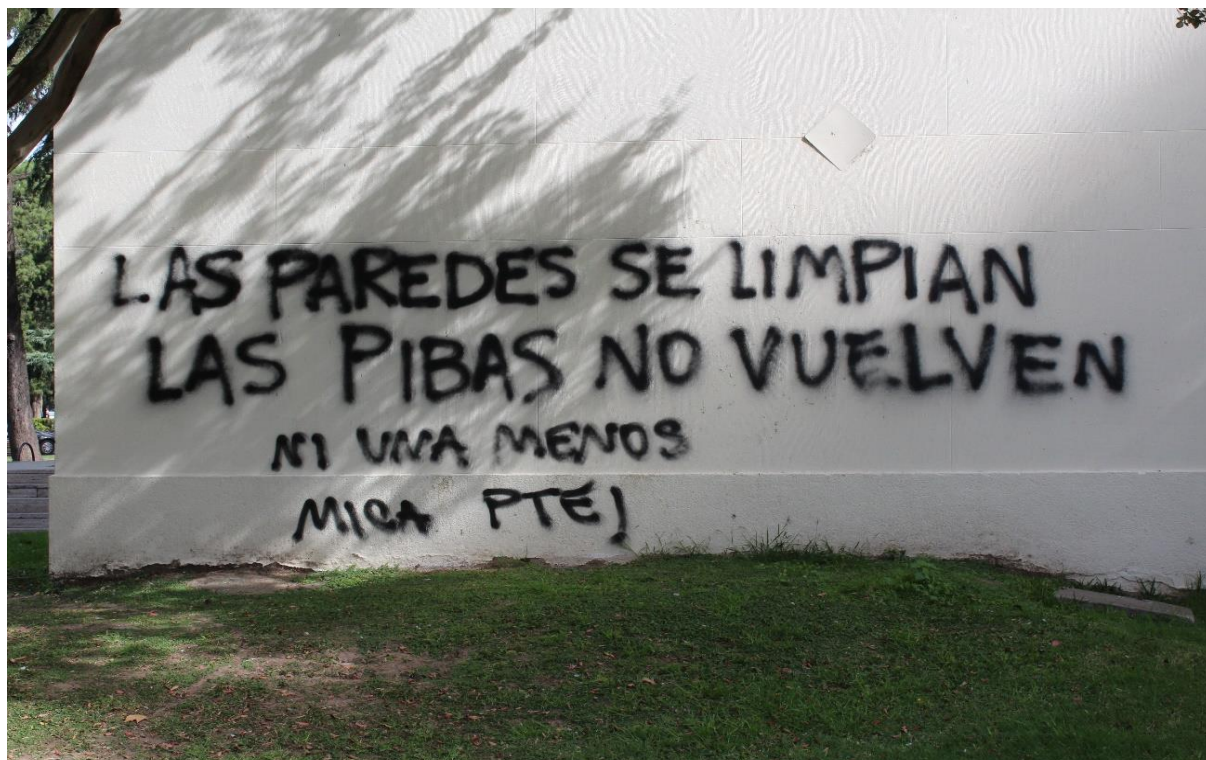 LAS PAREDES SE LIMPIAN
LAS PIBAS NO VUELVEN
NI UNA MENOS
MICA PTE!